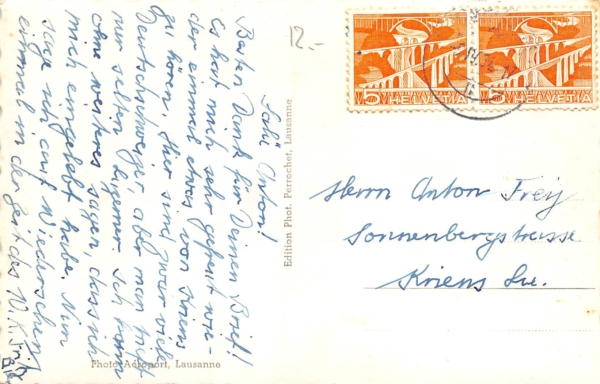 Lieber Anton!
Besten Dank für Deinen Brief!
Es hat mich sehr gefreut wie-
der einmal etwas von Kriens
zu hören. Hier sind zwar viele
Deutschschweizer, aber man trifft
nur selten Luzerner. Ich kann
ohne weiteres sagen, dass ich
mich eingelebt habe. Nun
sage ich auf Wiedersehen
einmal in der
Edition Phot. Perrochet, Lausanne
Photo Aéroport, Lausanne
12.-
5 HELVETIA
5 HELVETIA
Herrn Anton Frey
Sonnenbergstrasse
Kriens Lu.